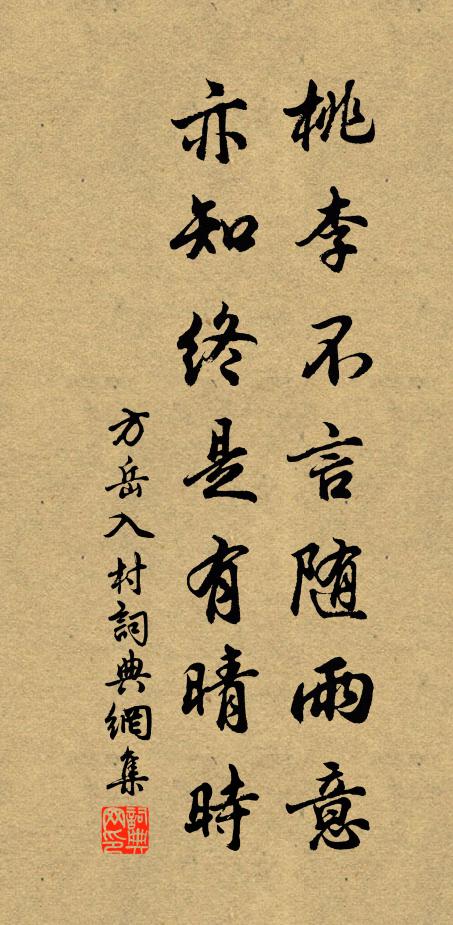 桃李不言随雨意
亦知终是有晴時
方岳入村詞典網集
詞典网印